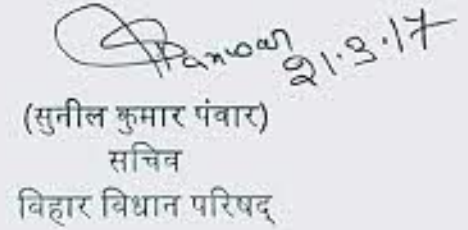 SPanwar
21.3.17
(सुनील कुमार पंवार)
सचिव
बिहार विधान परिषद्